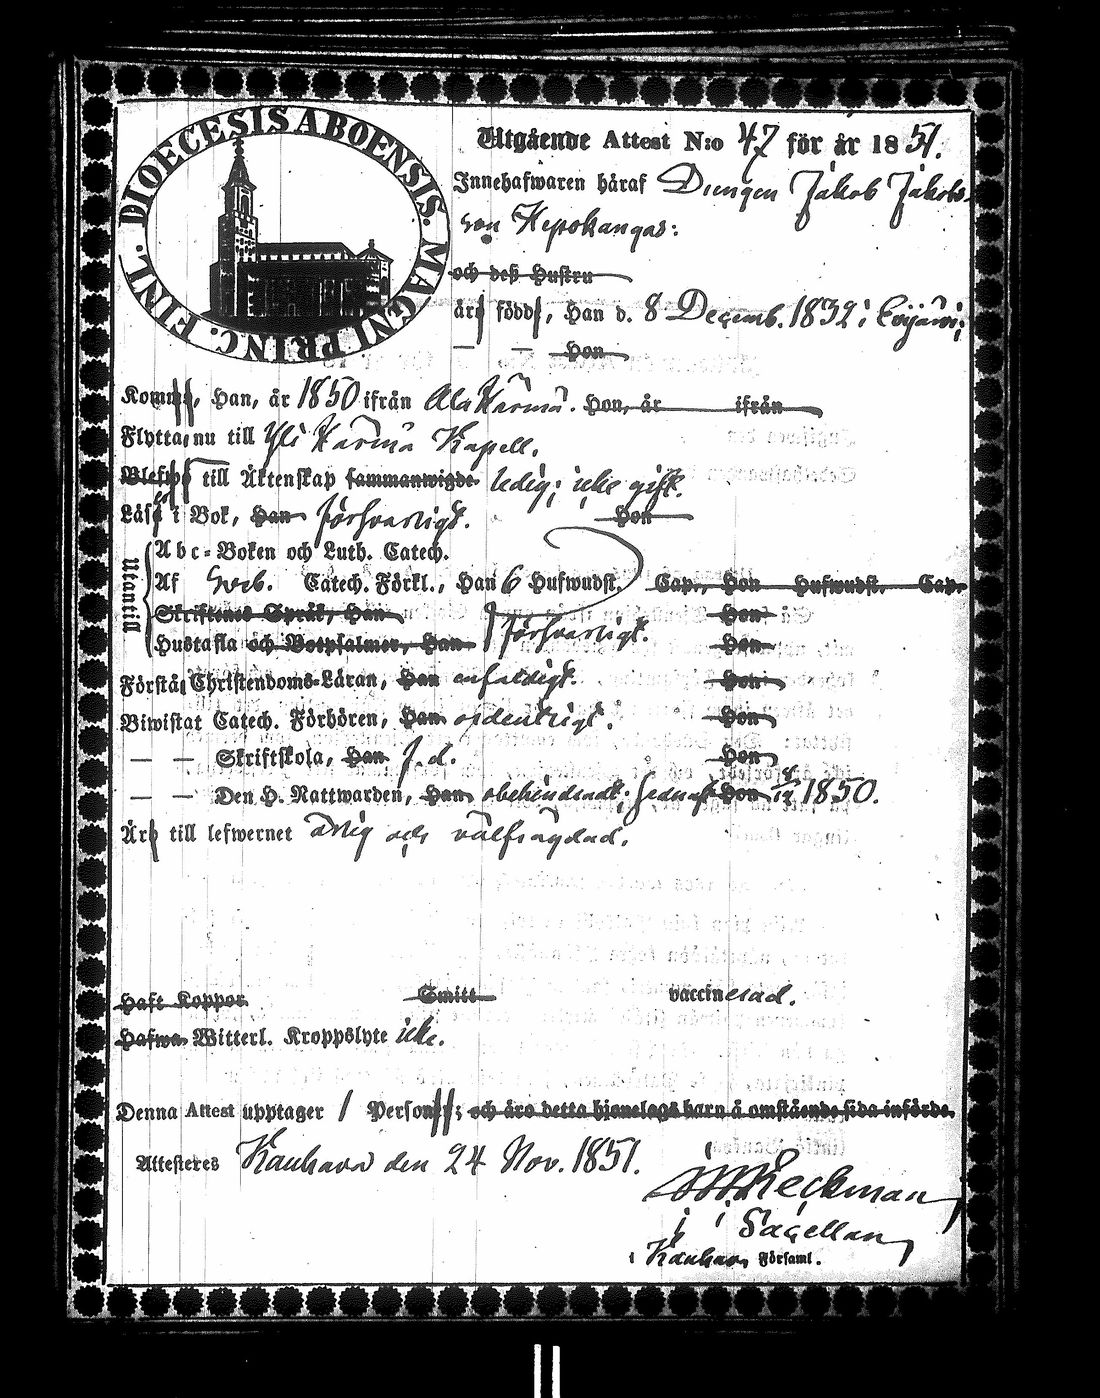 DIOECESIS ABOENSIS. MAGNI PRINC. FINL.
Utgående Attest N:o 47 för år 1851.
Innehafwaren häraf Drengen Jakob Jakobs-
son Hepokangas:
och deß Hustru
äro född, Han d. 8 Decemb. 1832 i Evijärvi;
— — Hon
Komne, Han, år 1850 ifrån Ala Härmä. Hon, år ifrån
Flytta, nu till Yli Härmä Kapell.
Blefwo till Äktenskap sammanwigde ledig; icke gift.
Läsa i Bok, Han försvarligt. Hon
Utantill
Abc-Boken och Luth. Catech.
Af Sveb. Catech. Förkl., Han 6 Hufwudst. Cap., Hon Hufwudst. Cap.
Skriftenes Språk, Han Hon
Hustafla och Botpsalmer, Han försvarligt. Hon
Förstå, Christendoms-Läran, Han enfaldigt. Hon
Biwistat Catech. Förhören, Han ordentligt. Hon
— — Skriftskola, Han J. d. Hon
— — Den H. Nattwarden, Han obehindradt; sednast Hon 1850.
Äro till lefwernet ärlig och välfrägdad.
Haft Koppor Smitt vaccinerad.
Hafwa Witterl. Kroppslyte icke.
Denna Attest upptager 1 Personer; och äro detta hjonelags barn å omstående sida införde.
Attesteres Kauhava den 24 Nov. 1851.
Heckman
Sacellan
i Kauhava Församl.